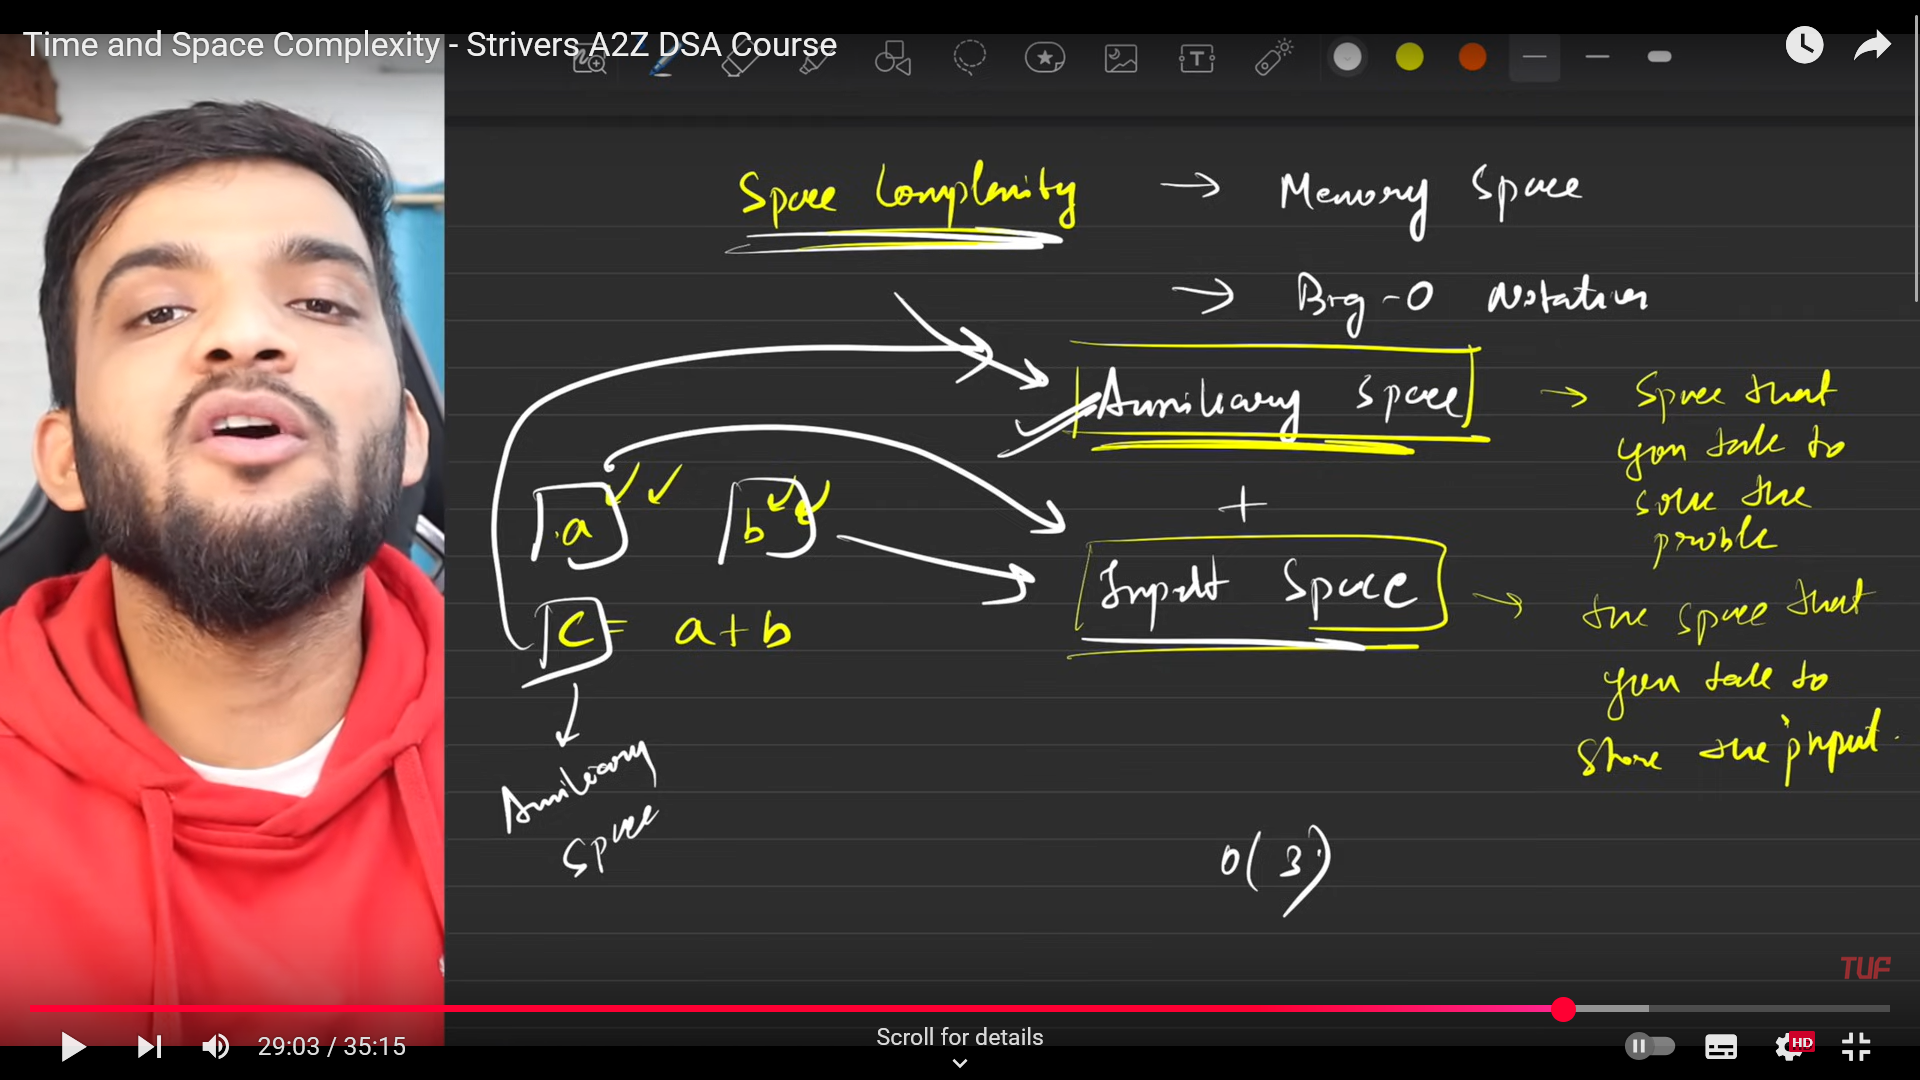 Time and Space Complexity - Strivers A2Z DSA Course
Space Complexity → Memory Space
→ Big-O Notation
Auxiliary Space → Space that
you take to
solve the
problem
+
a b
c = a+b
Input Space → the space that
you take to
store the input.
Auxiliary
Space
O(3)
TUF
29:03 / 35:15
Scroll for details
HD